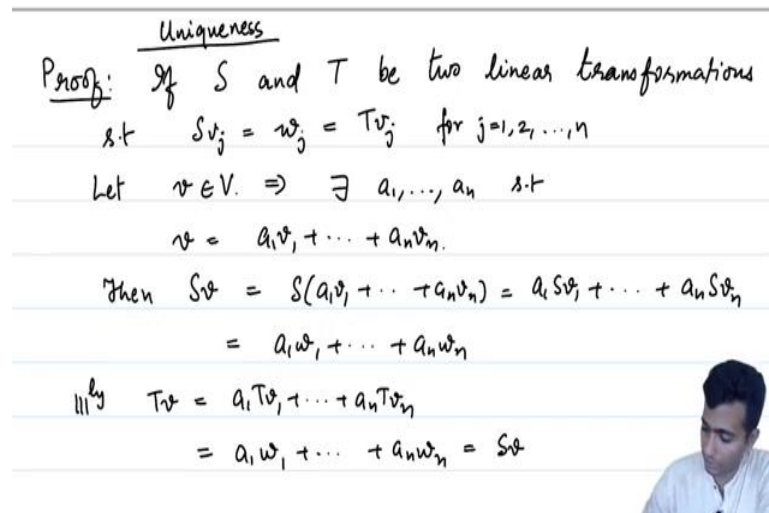 Uniqueness
Proof: If S and T be two linear transformations
s.t Svⱼ = wⱼ = Tvⱼ for j=1,2,...,n
Let v ∈ V. ⇒ ∃ a₁,..., aₙ s.t
v = a₁v₁ + ... + aₙvₙ.
Then Sv = S(a₁v₁ + .. + aₙvₙ) = a₁Sv₁ + ... + aₙSvₙ
= a₁w₁ + ... + aₙwₙ
lllly Tv = a₁Tv₁ + ... + aₙTvₙ
= a₁w₁ + ... + aₙwₙ = Sv